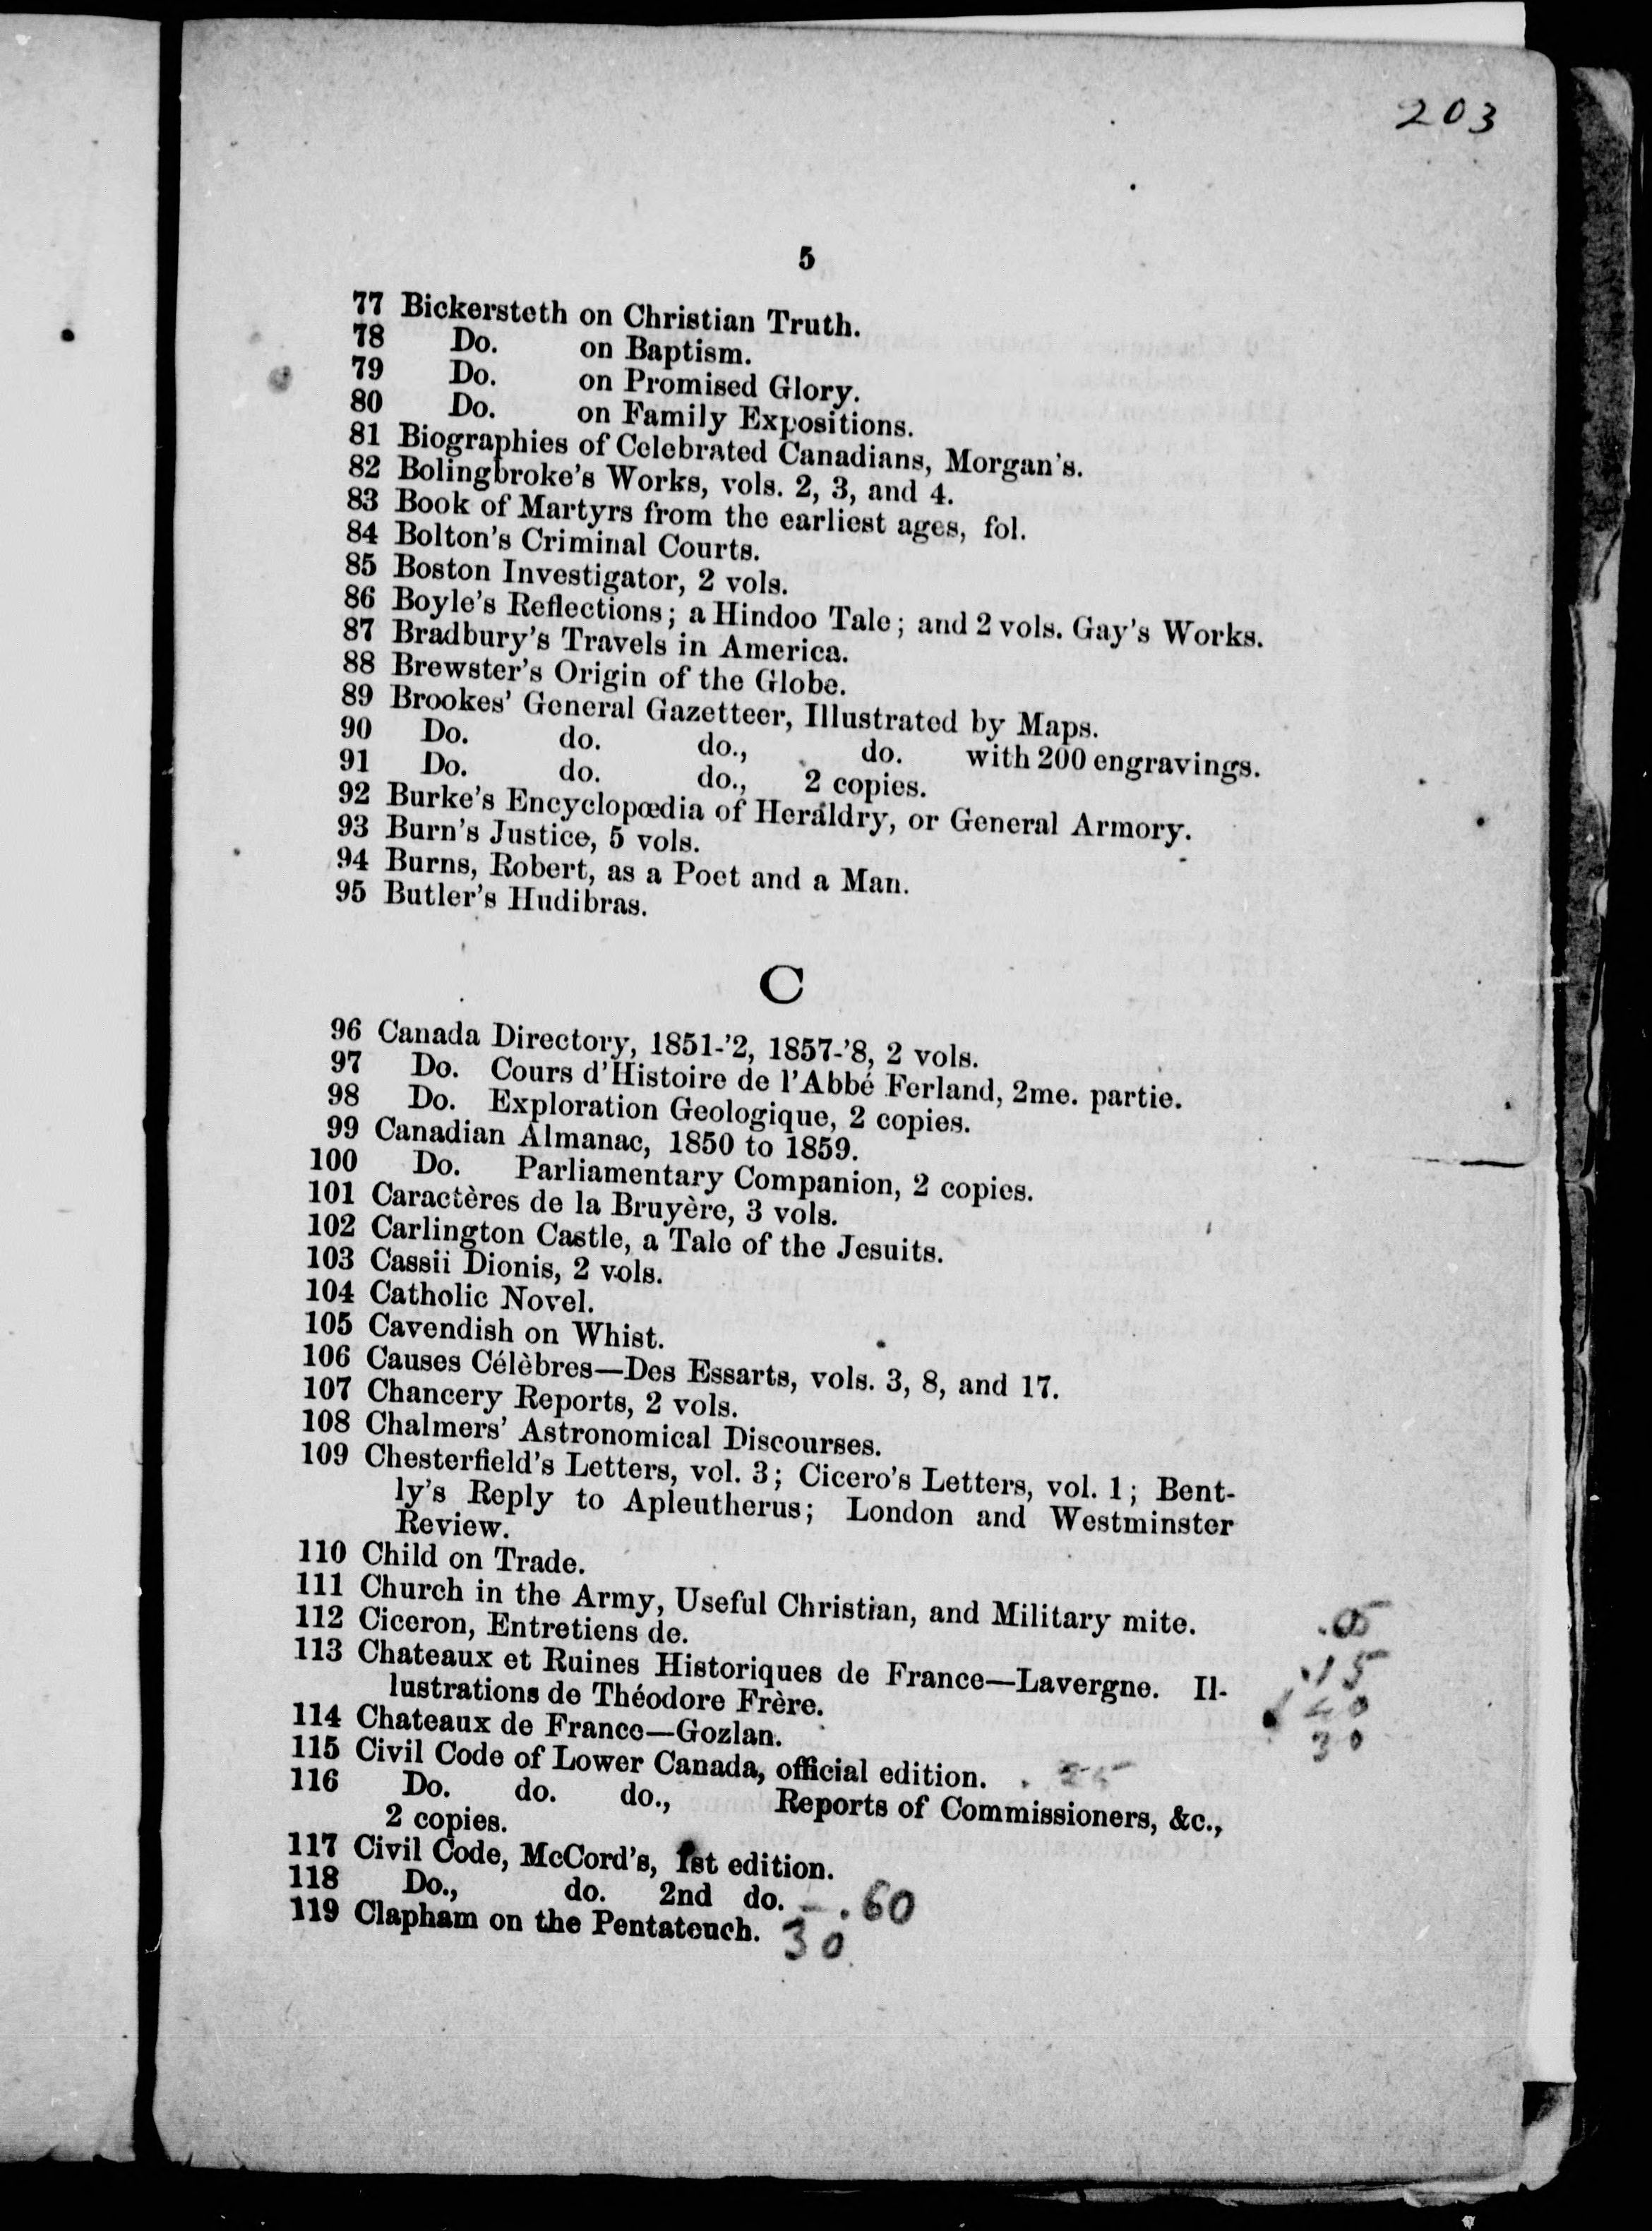 203
5
77 Bickersteth on Christian Truth.
78 Do. on Baptism.
79 Do. on Promised Glory.
80 Do. on Family Expositions.
81 Biographies of Celebrated Canadians, Morgan's.
82 Bolingbroke's Works, vols. 2, 3, and 4.
83 Book of Martyrs from the earliest ages, fol.
84 Bolton's Criminal Courts.
85 Boston Investigator, 2 vols.
86 Boyle's Reflections; a Hindoo Tale; and 2 vols. Gay's Works.
87 Bradbury's Travels in America.
88 Brewster's Origin of the Globe.
89 Brookes' General Gazetteer, Illustrated by Maps.
90 Do. do. do., do. with 200 engravings.
91 Do. do. do., 2 copies.
92 Burke's Encyclopœdia of Heraldry, or General Armory.
93 Burn's Justice, 5 vols.
94 Burns, Robert, as a Poet and a Man.
95 Butler's Hudibras.
C
96 Canada Directory, 1851-'2, 1857-'8, 2 vols.
97 Do. Cours d'Histoire de l'Abbé Ferland, 2me. partie.
98 Do. Exploration Geologique, 2 copies.
99 Canadian Almanac, 1850 to 1859.
100 Do. Parliamentary Companion, 2 copies.
101 Caractères de la Bruyère, 3 vols.
102 Carlington Castle, a Tale of the Jesuits.
103 Cassii Dionis, 2 vols.
104 Catholic Novel.
105 Cavendish on Whist.
106 Causes Célèbres—Des Essarts, vols. 3, 8, and 17.
107 Chancery Reports, 2 vols.
108 Chalmers' Astronomical Discourses.
109 Chesterfield's Letters, vol. 3; Cicero's Letters, vol. 1; Bent-
ly's Reply to Apleutherus; London and Westminster
Review.
110 Child on Trade.
111 Church in the Army, Useful Christian, and Military mite.
112 Ciceron, Entretiens de. .15
113 Chateaux et Ruines Historiques de France—Lavergne. Il-
lustrations de Théodore Frère. 40
114 Chateaux de France—Gozlan. 30
115 Civil Code of Lower Canada, official edition.
116 Do. do. do., Reports of Commissioners, &c.,
2 copies.
117 Civil Code, McCord's, 1st edition.
118 Do., do. 2nd do. — .60
119 Clapham on the Pentateuch. 30